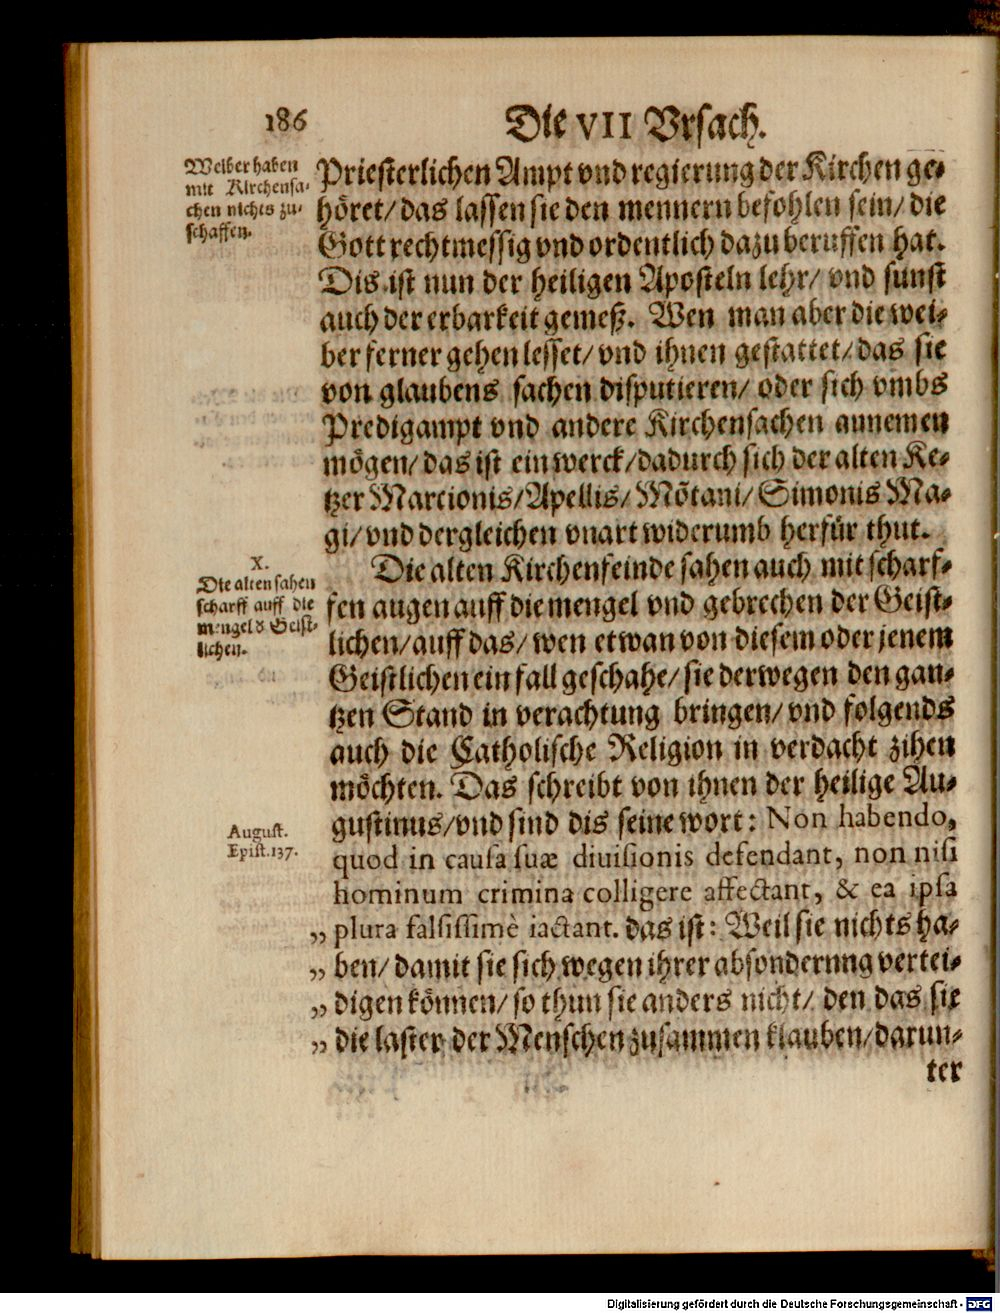 186
Die VII Vrsach.
Weiber haben
mit Kirchensa-
chen nichts zu-
schaffen.
Priesterlichen Ampt vnd regierung der Kirchen ge-
höret/ das lassen sie den mennern befohlen sein/ die
Gott rechtmessig vnd ordentlich dazu beruffen hat.
Dis ist nun der heiligen Aposteln lehr/ vnd sunst
auch der erbarkeit gemeß. Wen man aber die wei-
ber ferner gehen lesset/ vnd ihnen gestattet/ das sie
von glaubens sachen disputieren/ oder sich vmbs
Predigampt vnd andere Kirchensachen annemen
mögen/ das ist ein werck/ dadurch sich der alten Ke-
tzer Marcionis/ Apellis/ Mõtani/ Simonis Ma-
gi/ vnd dergleichen vnart widerumb herfür thut.
X.
Die alten sahen
scharff auff die
mengel d Geist-
lichen.
Die alten Kirchenfeinde sahen auch mit scharf-
fen augen auff die mengel vnd gebrechen der Geist-
lichen/ auff das/ wen etwan von diesem oder jenem
Geistlichen ein fall geschahe/ sie derwegen den gan-
tzen Stand in verachtung bringen/ vnd folgends
auch die Catholische Religion in verdacht zihen
möchten. Das schreibt von ihnen der heilige Au-
August.
Epist. 137.
gustinus/ vnd sind dis seine wort: Non habendo,
quod in causa suæ diuisionis defendant, non nisi
hominum crimina colligere affectant, & ea ipsa
„ plura falsissimè iactant. das ist: Weil sie nichts ha-
„ ben/ damit sie sich wegen ihrer absonderung vertei-
„ digen können/ so thun sie anders nicht/ den das sie
„ die laster der Menschen zusammen klauben/ darun-
ter
Digitalisierung gefördert durch die Deutsche Forschungsgemeinschaft - DFG